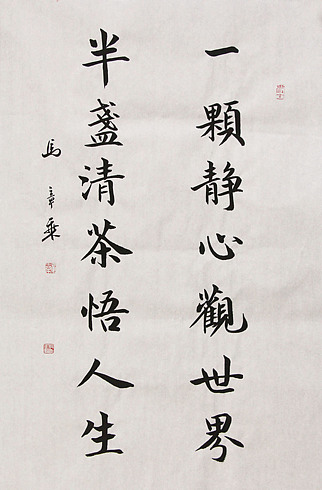 一顆静心觀世界
半盞清茶悟人生
馬章乘